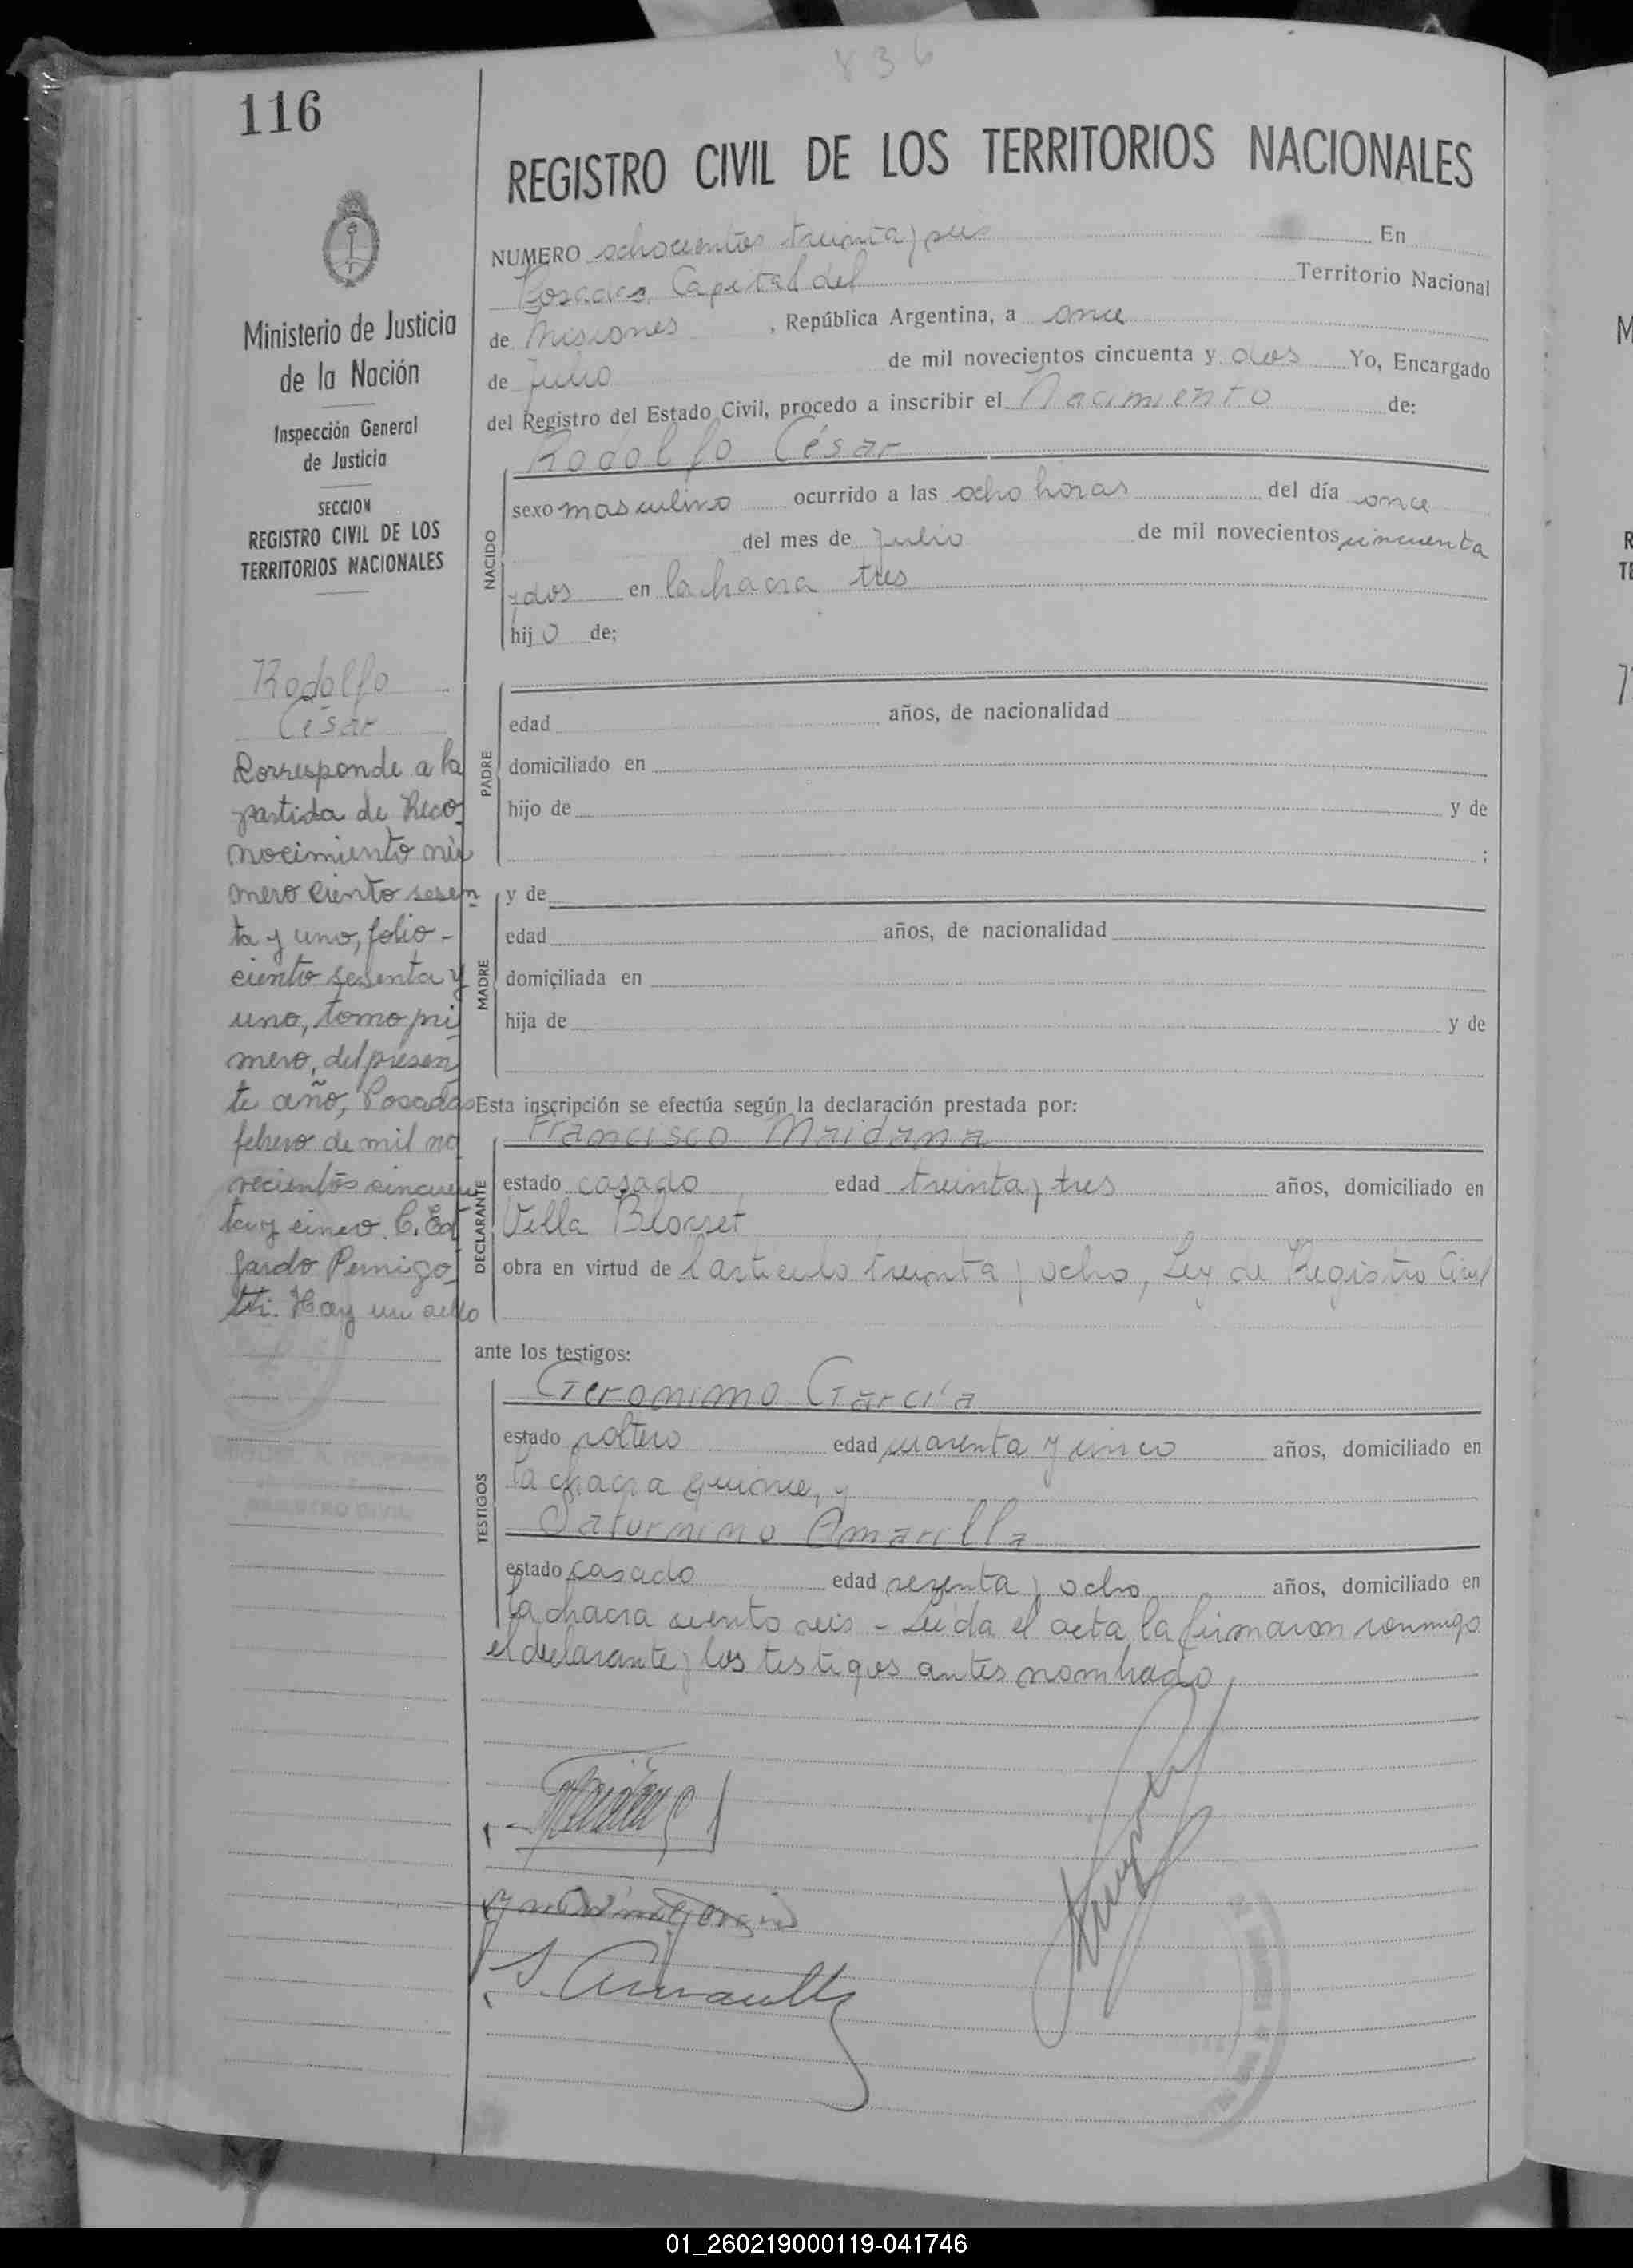 836
116
REGISTRO CIVIL DE LOS TERRITORIOS NACIONALES
Ministerio de Justicia
de la Nación
Inspección General
de Justicia
SECCION
REGISTRO CIVIL DE LOS
TERRITORIOS NACIONALES
Rodolfo
César
Corresponde a la
partida de Reco
nocimiento nú
mero ciento sesen
ta y uno, folio -
ciento sesenta y
uno, tomo pri
mero, del presen
te año, Posadas
febrero de mil no
vecientos cincuen
ta y cinco. C. Ed
gardo Pernigo
tti. Hay un sello
REGISTRO CIVIL
NUMERO ochocientos treinta y seis En
Posadas, Capital del Territorio Nacional
de Misiones , República Argentina, a once
de Julio de mil novecientos cincuenta y dos Yo, Encargado
del Registro del Estado Civil, procedo a inscribir el Nacimiento de:
Rodolfo César
NACIDO
sexo masculino ocurrido a las ocho horas del día once
del mes de Julio de mil novecientos cincuenta
y dos en la chacra tres
hijo de:
PADRE
edad años, de nacionalidad
domiciliado en
hijo de y de
;
MADRE
y de
edad años, de nacionalidad
domiciliada en
hija de y de
Esta inscripción se efectúa según la declaración prestada por:
Francisco Maidana
DECLARANTE
estado casado edad treinta y tres años, domiciliado en
Villa Blosset
obra en virtud de l artículo treinta y ocho, Ley de Registro Civil
ante los testigos:
Geronimo García
TESTIGOS
estado soltero edad cuarenta y cinco años, domiciliado en
la chacra quince, y
Saturnino Amarilla
estado casado edad sesenta y ocho años, domiciliado en
la chacra ciento seis - Leída el acta, la firmaron conmigo
el declarante y los testigos antes nombrado
S. Amarilla
M
R
TE
01_260219000119-041746